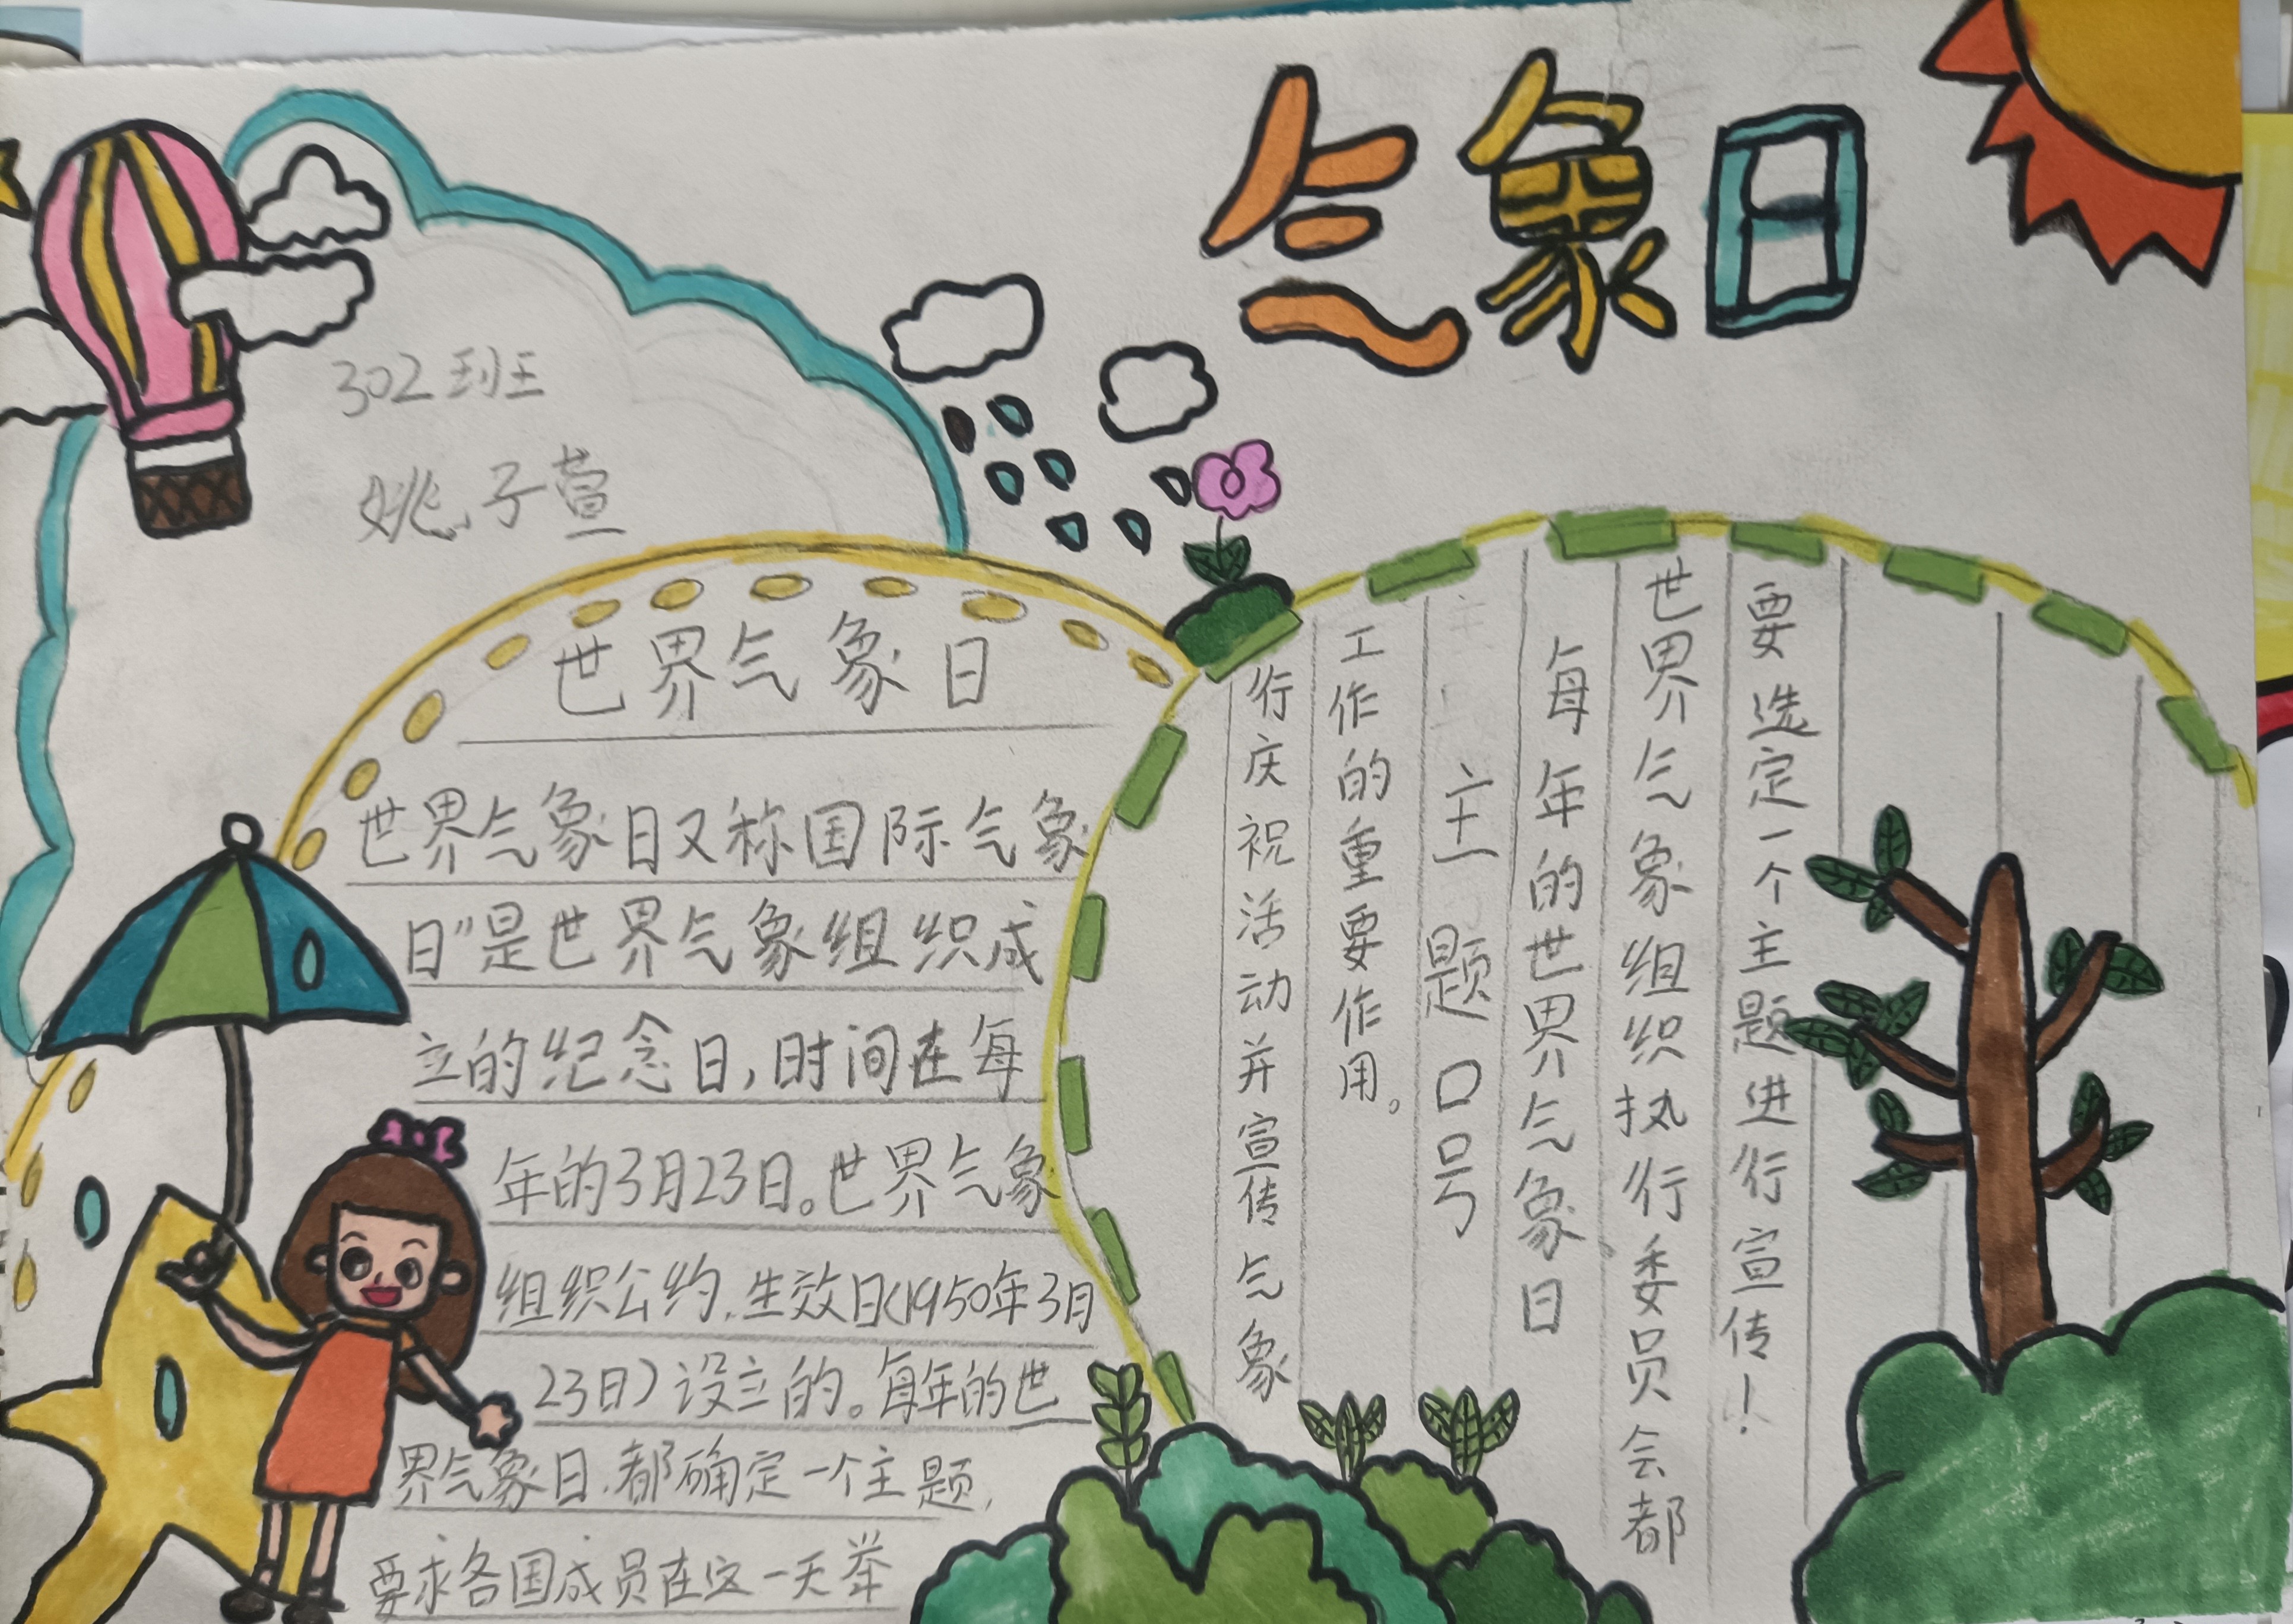 气象日
302班
姚子萱
世界气象日
世界气象日又称国际气象
日”是世界气象组织成
立的纪念日,时间在每
年的3月23日。世界气象
组织公约,生效日(1950年3月
23日)设立的。每年的世
界气象日,都确定一个主题,
要求各国成员在这一天举
行庆祝活动并宣传气象
工作的重要作用。
主题口号
每年的世界气象日、
世界气象组织执行委员会都
要选定一个主题进行宣传!